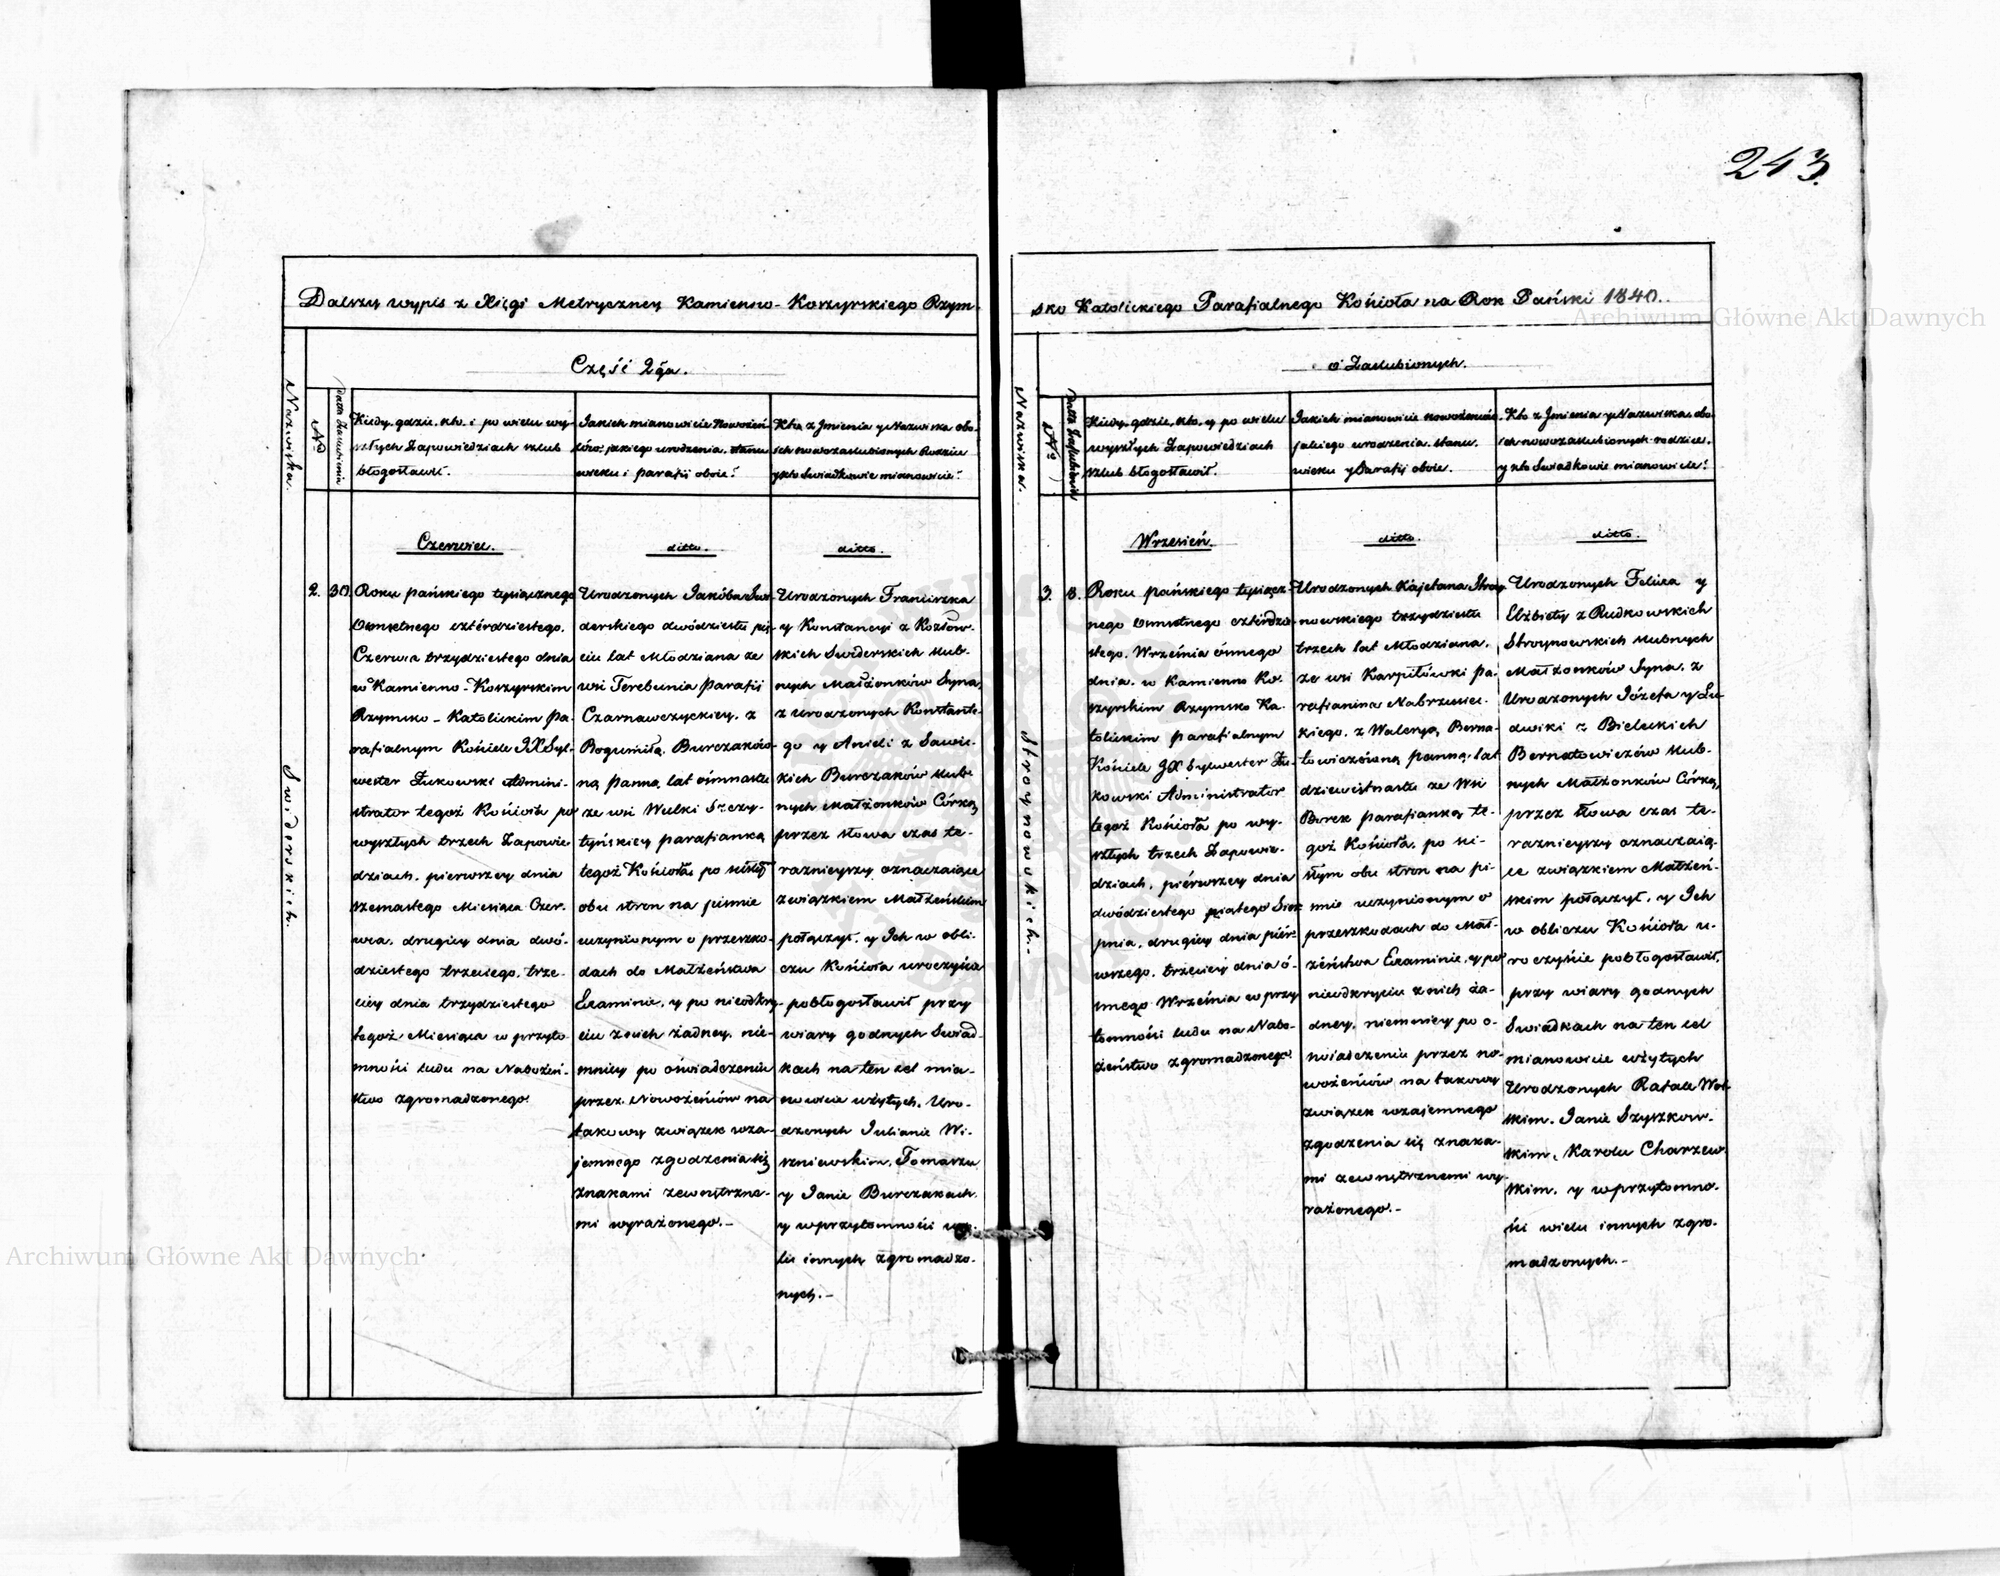 243.
Dalszy wypis z Xięgi Metryczney Kamienno-Koszyrskiego Rzym-
Część 2ga.
Nazwiska.
No
Data Zaslubienia
Kiedy, gdzie, kto, i po wielu wy-
szłych Zapowiedziach szlub
błogosławił.
Jakich mianowicie Nowożeń-
ców, jakiego urodzenia, stanu
wieku i parafii oboie?
Kto z Jmienia y Nazwiska obo-
ich nowozaslubionych Rodzice
y kto Swiadkowie mianowicie?
Czerwiec.
ditto.
ditto.
Swiderskich.
2.
30.
Roku pańskiego tysiącznego
Osmsetnego cztérdziestego,
Czerwca trzydziestego dnia
w Kamienno-Koszyrskim
Rzymsko-Katolickim pa-
rafialnym Kościele JX Syl-
wester Żukowski Admini-
strator tegoż Kościoła po
wyszłych trzech Zapowie-
dziach, pierwszey dnia
szesnastego Miesiąca Czer-
wca, drugiey dnia dwó-
dziestego trzeciego, trze-
ciey dnia trzydziestego
tegoż Miesiąca w przyto-
mności ludu na Nabożeń-
stwo zgromadzonego.
Urodzonych Jakóba Swi-
derskiego dwódziestu pię-
ciu lat Młodziana ze
wsi Terebunia parafii
Czarnawczyckiey, z
Bogumiłą Burczaków-
ną Panną lat ośmnastu
ze wsi Wulki Szczy-
tyńskiey parafianką
tegoż Kościoła, po ścisłym
obu stron na piśmie
uczynionym o przeszko-
dach do Małżeństwa
Examinie, y po nieodkry-
ciu z nich żadney, nie-
mniey po oświadczeniu
przez Nowożeńców na
takowy związek wza-
jemnego zgodzenia się
znakami zewnętrzne-
mi wyrażonego.-
Urodzonych Franciszka
y Konstancyi z Kozłow-
skich Swiderskich szlub-
nych Małżonków Syna,
z Urodzonych Konstante-
go y Anieli z Sawic-
kich Burczaków szlub-
nych Małżonków Córką,
przez słowa czas te-
raznieyszy oznaczaiące
związkiem Małżeńskim
połączył, y Ich w obli-
czu Kościoła uroczyście
pobłogosławił przy
wiary godnych Swiad-
kach na ten cel mia-
nowicie użytych, Uro-
dzonych Julianie Wi-
szniewskim, Tomaszu
y Janie Burczakach,
y w przytomności wie-
lu innych zgromadzo-
nych.-
sko Katolickiego Parafialnego Kościoła na Rok Pański 1840.
o Zaslubionych.
Nazwiska.
No
Data Zaslubienia
Kiedy, gdzie, kto, y po wielu
wyszłych Zapowiedziach
szlub błogosławił.
Jakich mianowicie nowożeńców,
jakiego urodzenia, stanu,
wieku y Parafii oboie.
Kto z Jmienia y Nazwiska obo-
ich nowozaslubionych rodzice,
y kto Swiadkowie mianowicie?
Wrzesień.
ditto.
ditto.
Stroynowskich.
3.
8.
Roku pańskiego tysiącz-
nego Osmsetnego cztérdzie-
stego, Września ósmego
dnia, w Kamienno Ko-
szyrskim Rzymsko Ka-
tolickim parafialnym
Kościele JX Sylwester Żu-
kowski Administrator
tegoż Kościoła po wy-
szłych trzech Zapowie-
dziach, piérwszey dnia
dwódziestego piątego Sier-
pnia, drugiey dnia piér-
wszego, trzeciey dnia ó-
smego Września w przy-
tomności ludu na Nabo-
żeństwo zgromadzonego.
Urodzonych Kajetana Stroy-
nowskiego trzydziestu
trzech lat Młodziana,
ze wsi Karpiłówki pa-
rafianina Nabrzusic-
kiego, z Waleryą Berna-
towiczówną panną, lat
dziewiętnastu ze Wsi
Borek parafianką te-
goż Kościoła, po ści-
słym obu stron na pi-
śmie uczynionym o
przeszkodach do Mał-
żeństwa Examinie, y po
nieodkryciu z nich ża-
dney, niemniey po o-
świadczeniu przez no-
wożeńców na takowy
związek wzajemnego
zgodzenia się znaka-
mi zewnętrznemi wy-
rażonego.-
Urodzonych Felixa y
Elżbiety z Rudkowskich
Stroynowskich szlubnych
Małżonków Syna, z
Urodzonych Józefa y Lu-
dwiki z Bieleckich
Bernatowiczów szlub-
nych Małżonków Córką,
przez słowa czas te-
raznieyszy oznaczaią-
ce związkiem Małżeń-
skim połączył, y Ich
w obliczu Kościoła u-
roczyście pobłogosławił,
przy wiary godnych
Swiadkach na ten cel
mianowicie użytych
Urodzonych Rafale Wol-
skim, Janie Szyszkow-
skim, Karolu Charzew-
skim, y w przytomno-
ści wielu innych zgro-
madzonych.-
Archiwum Główne Akt Dawnych
Archiwum Główne Akt Dawnych